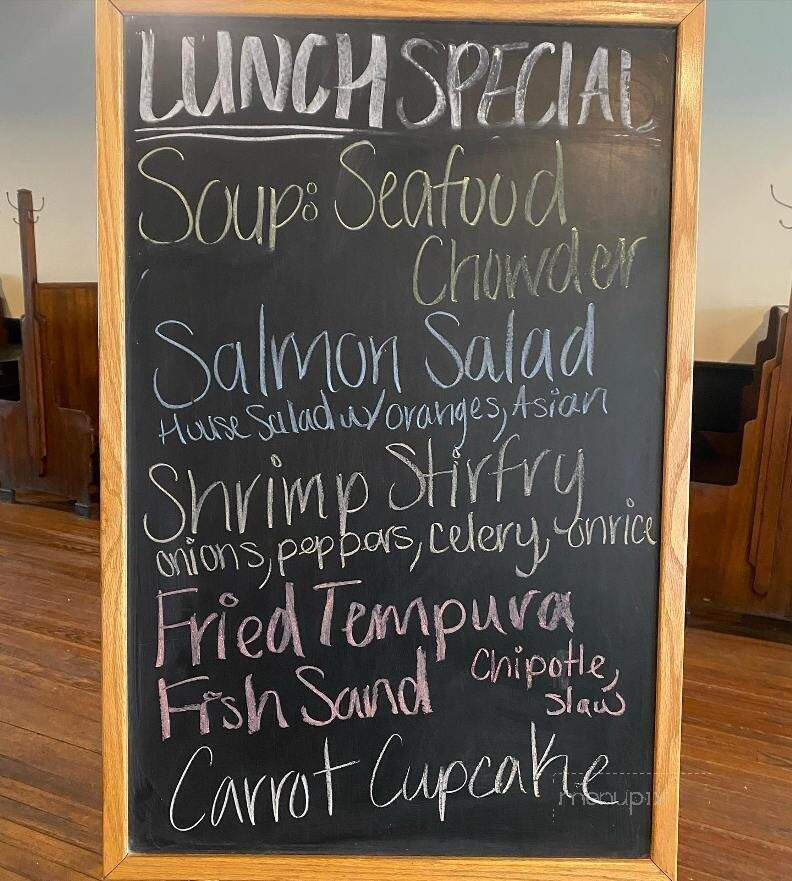 LUNCH SPECIAL
Soup: Seafood
Chowder
Salmon Salad
House Salad w/ oranges, Asian
Shrimp Stirfry
onions, peppars, celery, onrice
Fried Tempura
Fish Sand Chipotle,
slaw
Carrot Cupcake
menupix